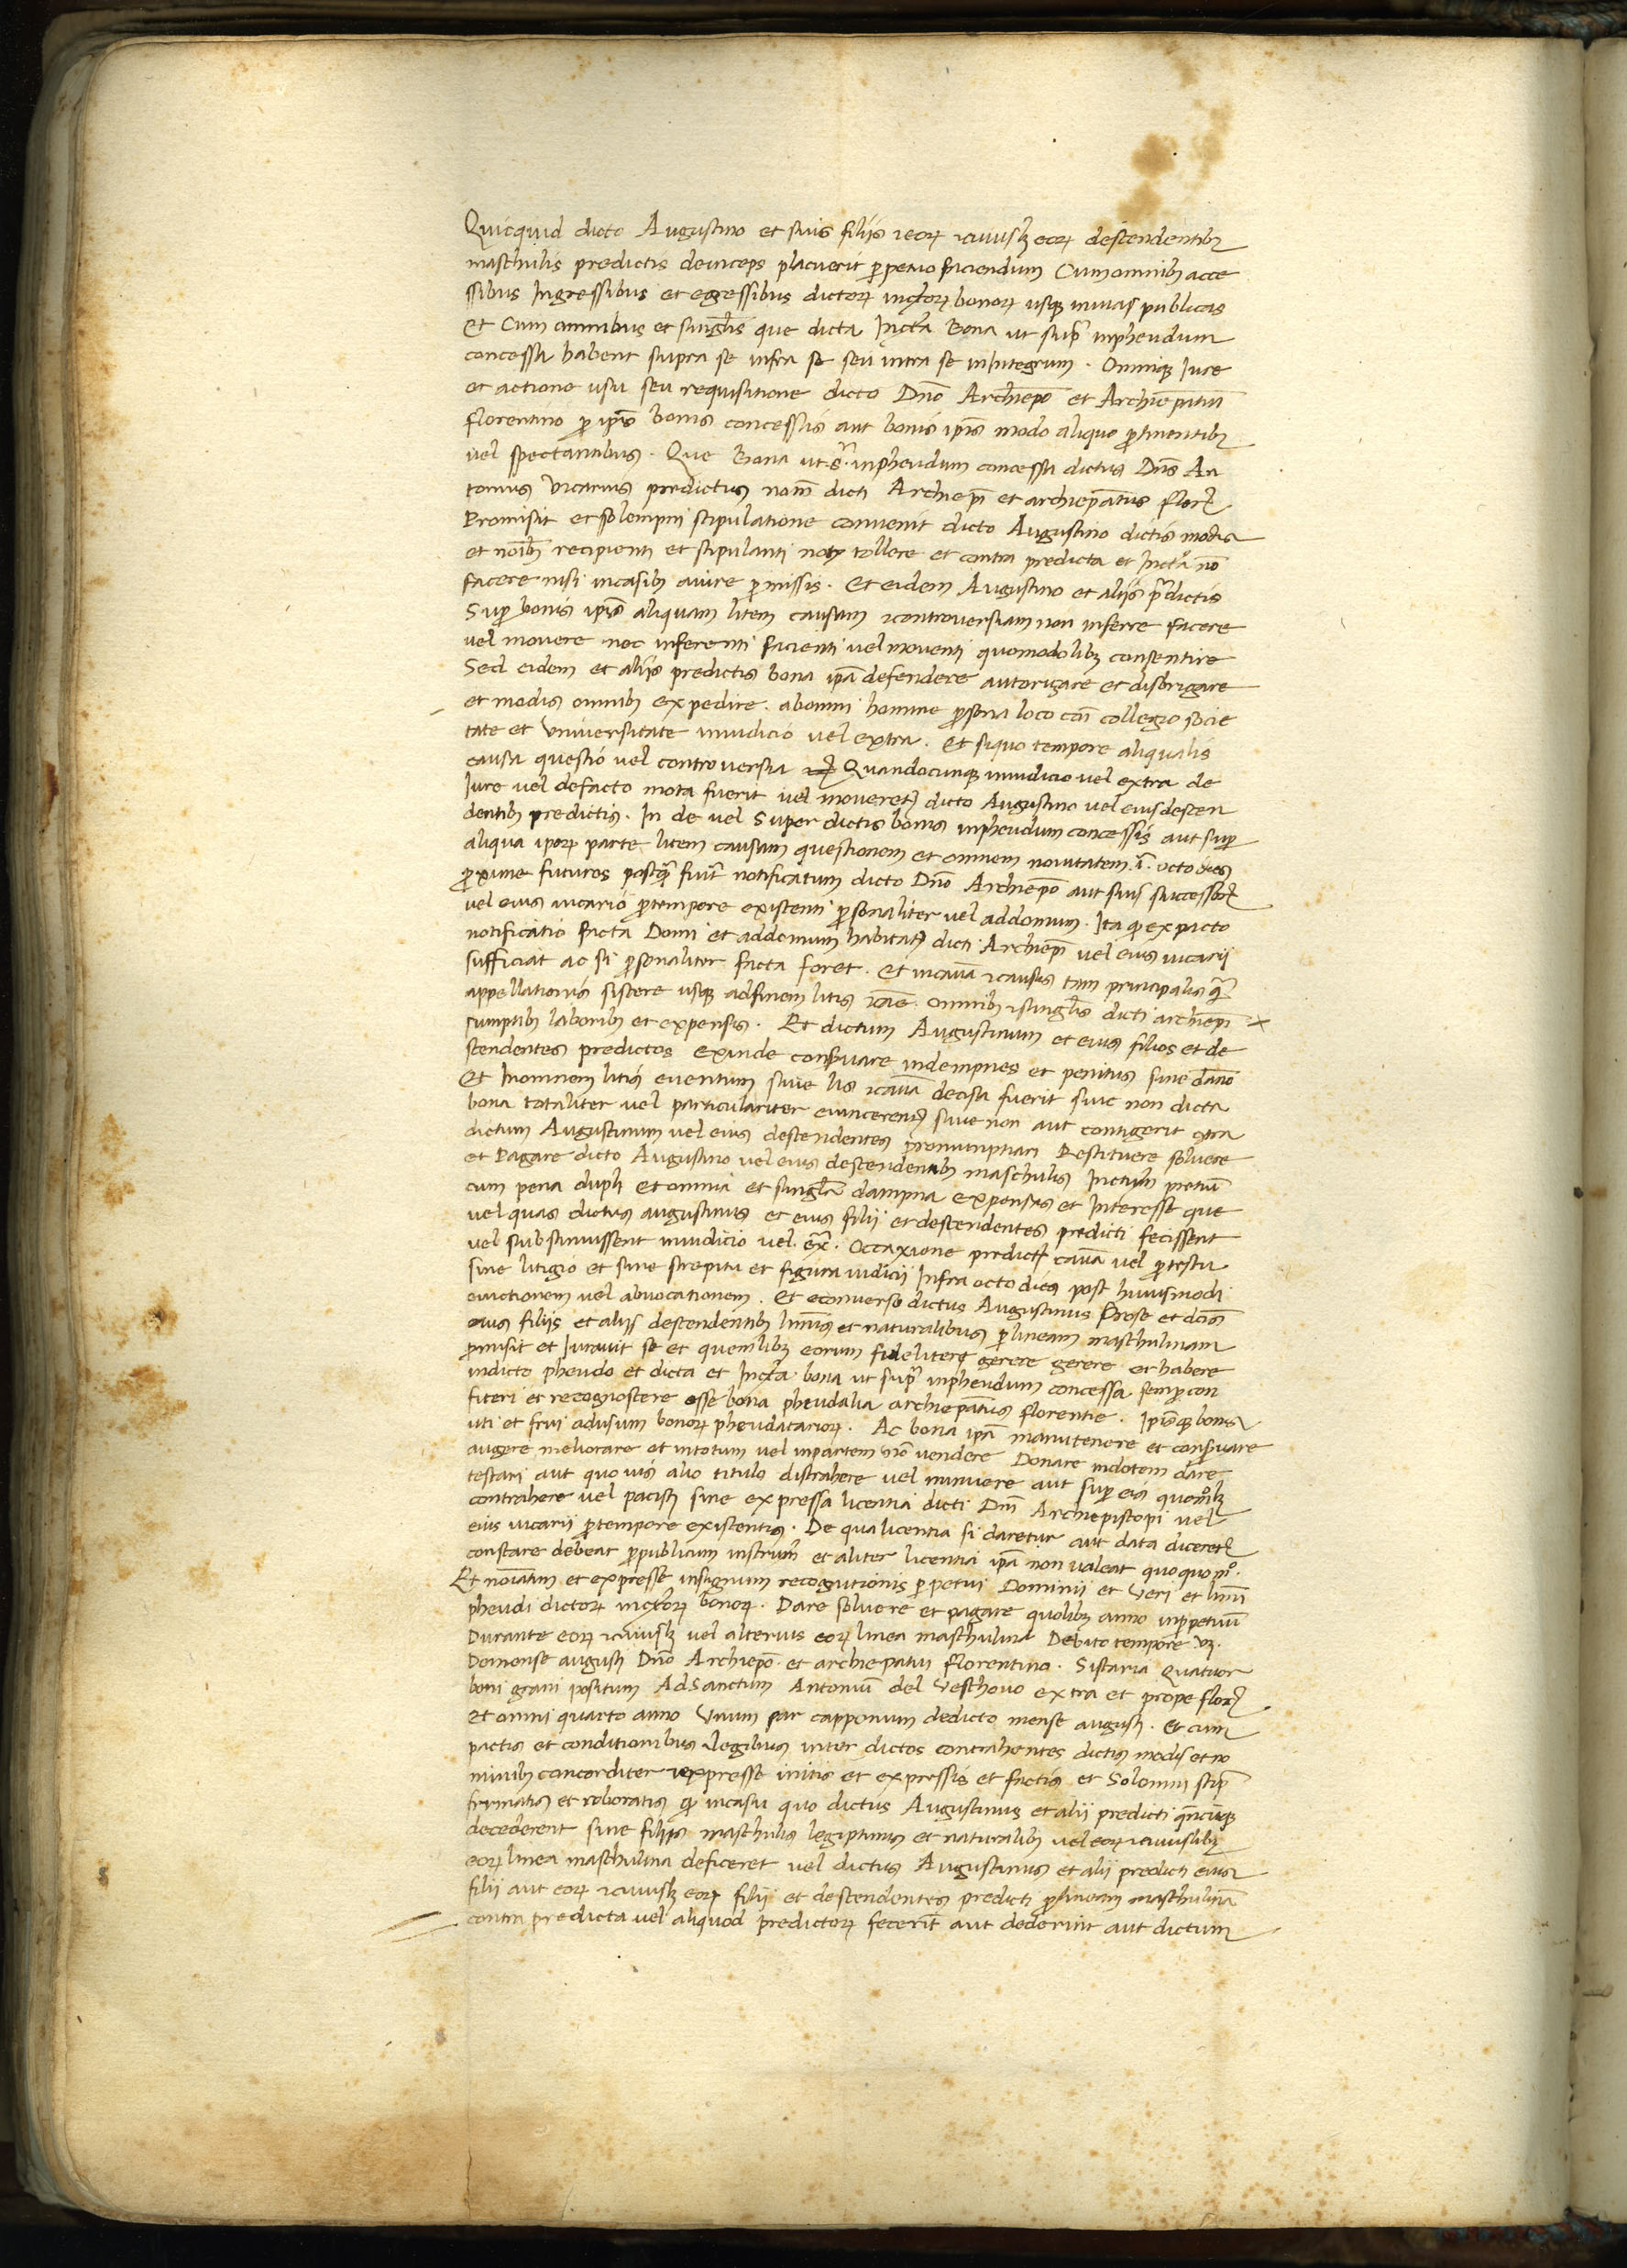 Quicquid dicto Augustino et suis filiis et eorꝝ et cuiuslꝫ eorꝝ descendentibꝫ
maschulis predictis deinceps placuerit ꝑpetuo faciendum Cum omnibꝫ acce
ssibus Ingressibus et egressibus dictorꝝ bonorꝝ usqꝫ in uias publicas
et Cum omnibus et singl̄is que dicta Bona ut supͣ inpheudum
concessa habent supra se infra se seu intra se inIntegrum . Omniqꝫ Iure
et actione usu seu requisitione dicto Dn̄o Archiep̄o et Archiep̄atui
florentino ꝑ ip̄is bonis concessis aut bonis ip̄is modo aliquo ꝑtinentibꝫ
uel spectantibus . Que Bona ut sͣ inpheudum concessa dictus Dn̄s An
tonius Vicarius predictus noīe dicti Archiep̄i et archiep̄atus flor̄
Promisit et solempni stipulatione conuenit dicto Augustino dictis modis
et noībꝫ recipienti et stipulanti tollere et contra predicta et nō
facere nisi in casibꝫ a iure ꝑmissis . Et eidem Augustino et aliis p̄dictis
Suꝑ bonis ip̄is aliquam litem causam et controuersiam non inferre facere
uel mouere nec inferenti facienti uel mouenti quomodolibꝫ consentire
Sed eidem et aliis predictis bona ip̄a defendere autorizare et disbrigare
et modis omnibꝫ expedire . ab omni homine ꝑsona loco cōi collegio socie
tate et Vniuersitate in iudicio uel extra . Et si quo tempore aliqualis
causa questio uel controuersia Quandocunqꝫ in iudicio uel extra de
Iure uel de facto mota fuerit uel moueretꝝ dicto Augustino uel eius descen
dentibꝫ predictis . In de uel Super dictis bonis inpheudum concessis aut suꝑ
aliqua ip̄orꝝ parte litem causam questionem et omnem nouitatem . ī . octo dies
ꝓxime futuros postqͣ fuīt notificatum dicto Dn̄o Archiep̄o aut suis
uel eius uicario ꝓ tempore existenti ꝑsonaliter uel ad domum . Ita ꝙ ex pacto
notificatio facta Domi et ad domum habitat̄ dicti Archiep̄i uel eius uicarii
sufficiat ac si ꝑsonaliter facta foret . et in causa et causis tam principalis qͣ
appellationis sistere usqꝫ ad finem litis omnibꝫ et singl̄is dicti archiep̄i
sumptibꝫ laboribꝫ et expensis . Et dictum Augustinum et eius filios et de
scendentes predictos exinde conꝑuare indempnes et penitus sine dāno
Et Inomnem litis euentum siue lis et cāuā decisa fuerit siue non dicta
bona totaliter uel particulariter euincerent̄ siue non aut contigerit ↄtra
dictum Augustinum uel eius descendentes pronumptiari Restituere soluere
et Pagare dicto Augustino uel eius descendentibꝫ maschulis pretiū
cum pena dupli et omnia et singl̄a dampna expensas et Interesse que
uel quas dictus augustinus et eius filii et descendentes predicti fecissent
uel substinuissent in iudicio uel exͣ . Occaxione predict̄ cāuā uel ꝓtestu
sine litigio et sine strepitu et figura iudicii Infra octo dies post huiusmodi
euictionem uel abuocationem . Et econuerso dictus Augustinus Prose et dc̄is
eius filiis et aliis descendentibꝫ et naturalibus ꝑ lineam maschulinam
ꝓmisit et Iurauit se et quemlibꝫ eorum fideliter gerere gerere et habere
in dicto pheudo et dicta et bona ut supͣ inpheudum concessa semꝑ con
fiteri et recognoscere esse bona pheudalia archiep̄atus florentie . Ip̄isqꝫ bonis
uti et frui ad usum bonorꝝ pheudatariorꝝ . Ac bona ip̄a manutenere et conꝑuare
augere meliorare et in totum uel in partem nō vendere Donare in dotem dare
testari aut quouis alio titulo distrahere uel minuere aut suꝑ eis
contrahere uel pacisci sine expressa licentia dicti Dn̄i Archiepiscopi uel
eius uicarii ꝓ tempore existentis . De qua licentia si daretur aut data diceret̄
constare debeat ꝑ publicum instrum̄ et aliter licentia ip̄a non ualeat quoquo mº .
Et noīatim et expresse in signum recognitionis ꝑpetui Dominii et Veri et
pheudi dictorꝝ bonorꝝ . Dare soluere et pagare quolibꝫ anno in ꝑpetuū
Durante eorꝝ et cuiuslꝫ vel alterius eorꝝ linea maschulina Debito tempore vꝫ .
De mense augusti Dn̄o Archiep̄o et archiep̄atui florentino . Sistaria Quatuor
boni grani positum Ad Sanctum Antoniū del Veschouo extra et prope flor̄
Et omni quarto anno Vnum par capponum de dicto mense augusti . et cum
pactis et conditionibus et legibus inter dictos contrahentes dictis modis et no
minibꝫ concorditer et expresse initis et expressis et factis et Solemni stip̄
firmatis et roboratis ꝙ in casu quo dictus Augustinus et alii predicti
decederent sine filiis maschulis legiptimis et naturalibꝫ uel eorꝝ et cuiuslibꝫ
eorꝝ linea maschulina deficeret uel dictus Augustinus et alii predicti eius
filii aut eorꝝ et cuiuslꝫ eorꝝ filii et descendentes predicti ꝑ lineam maschulinā
contra predicta uel aliquod predictorꝝ fecerīt aut dederint aut dictum